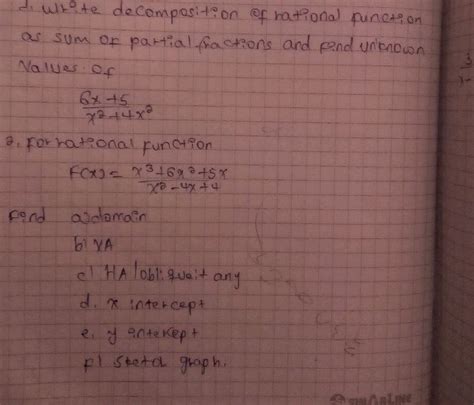 1. write decomposition of rational function
as sum of partial fractions and fend unknown
Values of
6x+5
x²+4x²
2. For rational function
F(x) = x³+6x²+5x
x²-4x+4
Fend a) domain
b) VA
c) HA/oblique it any
d. x intercept
e. y intekept
f) sketch graph.
3